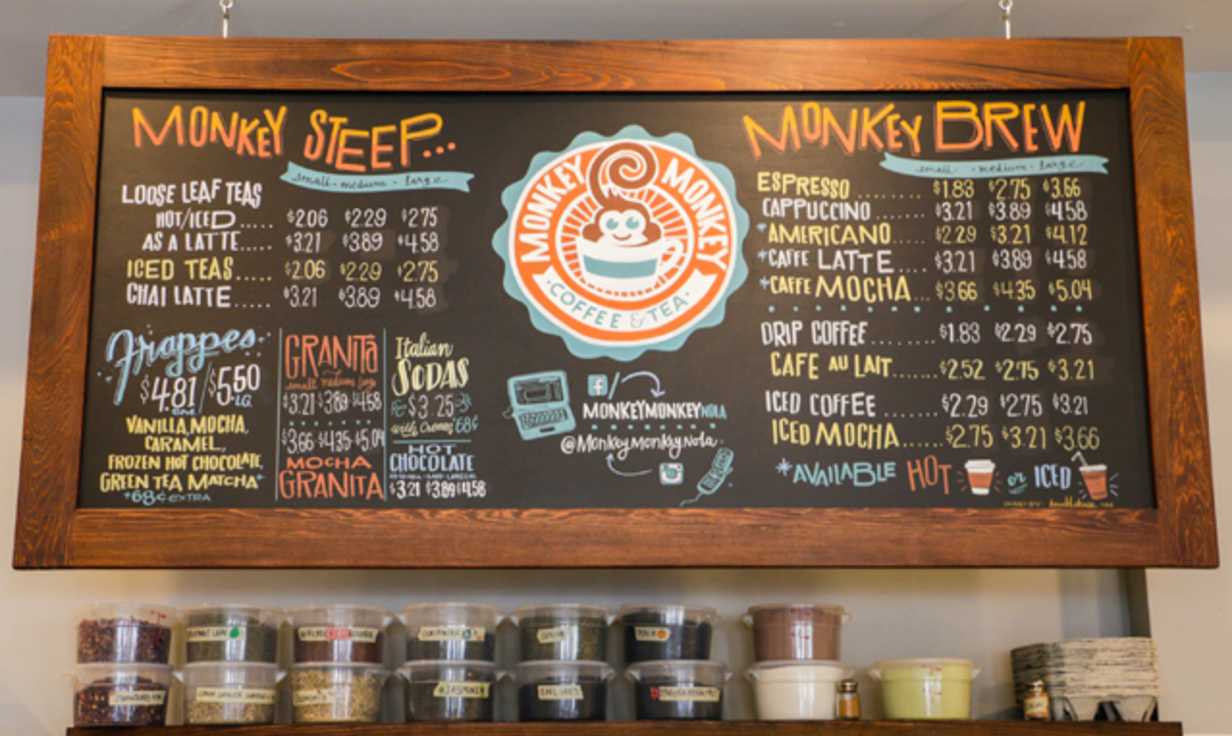 MONKEY STEEP...
small - medium - large
LOOSE LEAF TEAS
HOT/ICED ..... $2.06 $2.29 $2.75
AS A LATTE ..... $3.21 $3.89 $4.58
ICED TEAS ..... $2.06 $2.29 $2.75
CHAI LATTE ..... $3.21 $3.89 $4.58
Frappes
$4.81 / $5.50 LG.
VANILLA, MOCHA,
CARAMEL,
FROZEN HOT CHOCOLATE,
GREEN TEA MATCHA*
*68¢ EXTRA
GRANITA
small medium large
$3.21 $3.89 $4.58
$3.66 $4.35 $5.04
MOCHA
GRANITA
Italian
SODAS
$3.25
with Creme 68¢
HOT
CHOCOLATE
$3.21 $3.89 $4.58
MONKEY MONKEY
COFFEE & TEA
f /
MONKEYMONKEYNOLA
@MonkeyMonkeyNola
MONKEY BREW
small - medium - large
ESPRESSO ........ $1.83 $2.75 $3.66
CAPPUCCINO ....... $3.21 $3.89 $4.58
*AMERICANO ..... $2.29 $3.21 $4.12
*CAFFE LATTE .... $3.21 $3.89 $4.58
*CAFFE MOCHA ... $3.66 $4.35 $5.04
DRIP COFFEE ....... $1.83 $2.29 $2.75
CAFE AU LAIT ....... $2.52 $2.75 $3.21
ICED COFFEE .... $2.29 $2.75 $3.21
ICED MOCHA ...... $2.75 $3.21 $3.66
*AVAILABLE HOT or ICED
JASMINE